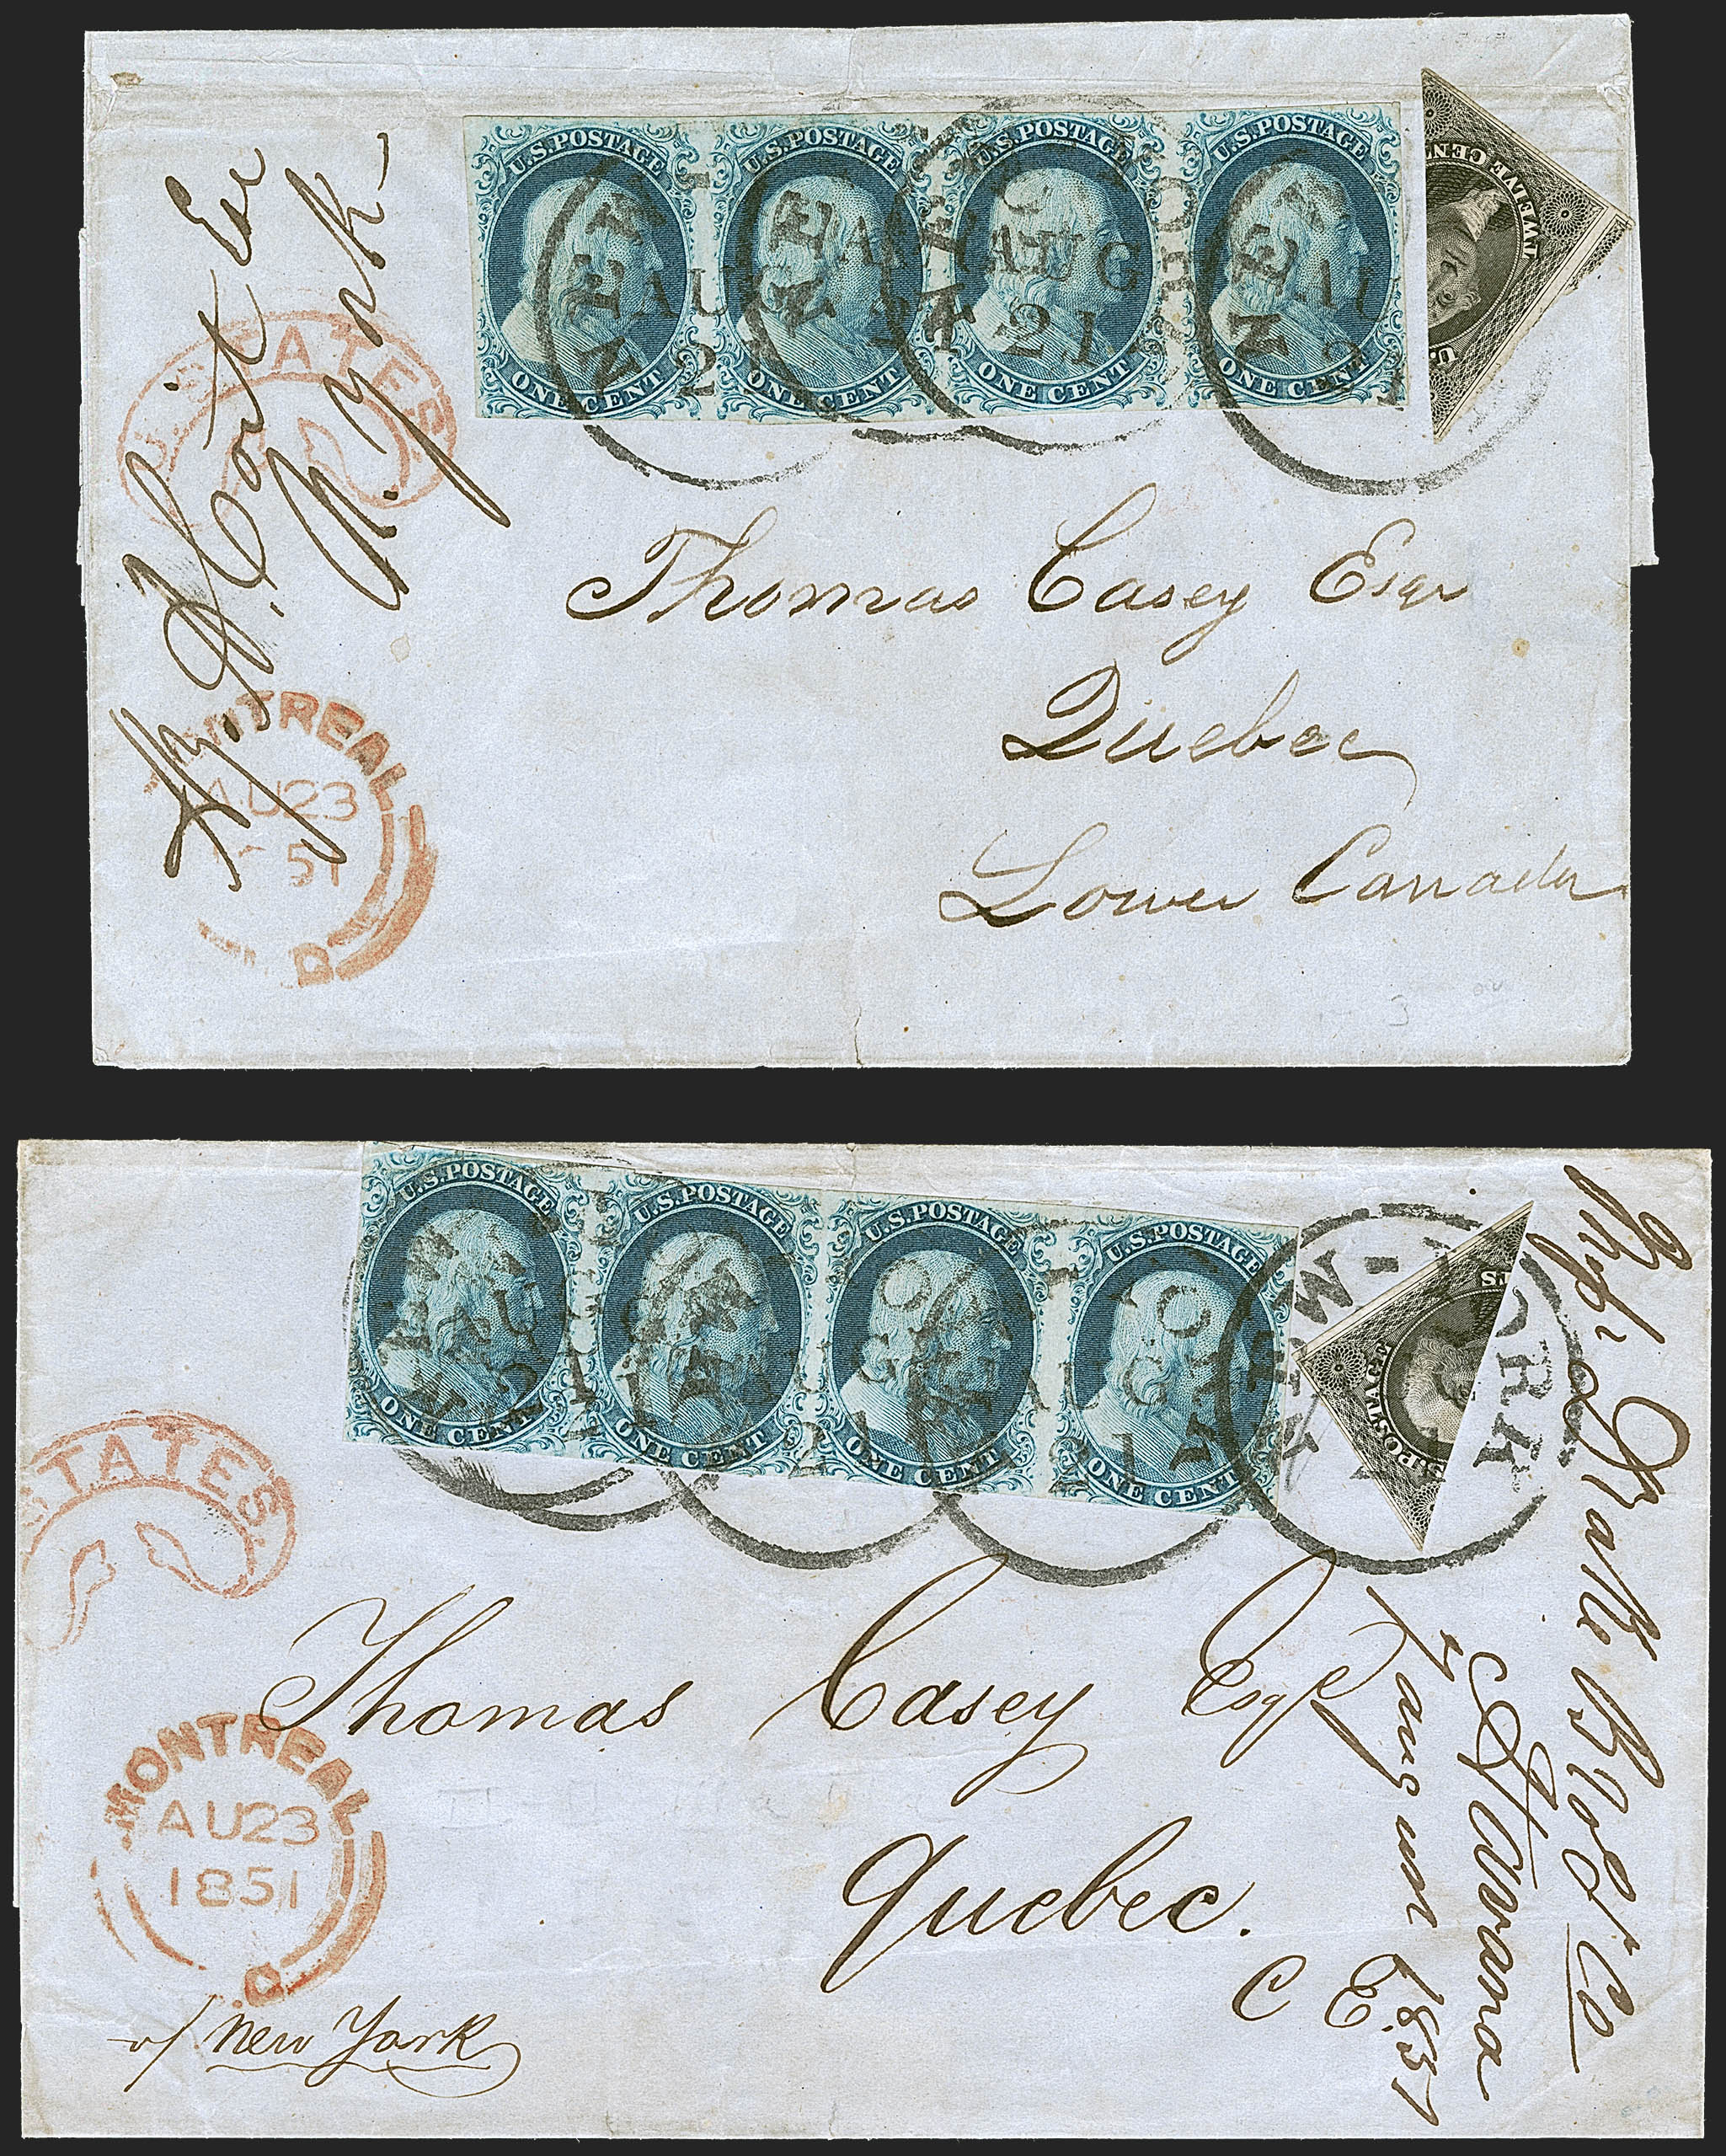 U.S. POSTAGE
ONE CENT
U.S. POSTAGE
ONE CENT
U.S. POSTAGE
ONE CENT
U.S. POSTAGE
ONE CENT
TWELVE CENT
U.S
NEW
AUG
21
U. STATES
N. York
Thomas Casey Esqr
Quebec
Lower Canada
MONTREAL
AU 23
51
U.S. POSTAGE
ONE CENT
U.S. POSTAGE
ONE CENT
U.S. POSTAGE
ONE CENT
U.S. POSTAGE
ONE CENT
.POSTAGE
TS
NEW YORK
STATES
Thomas Casey Esqr
Quebec.
C E.
MONTREAL
AU 23
1851
v/ New York
Drake & Co
Havana
August 1851